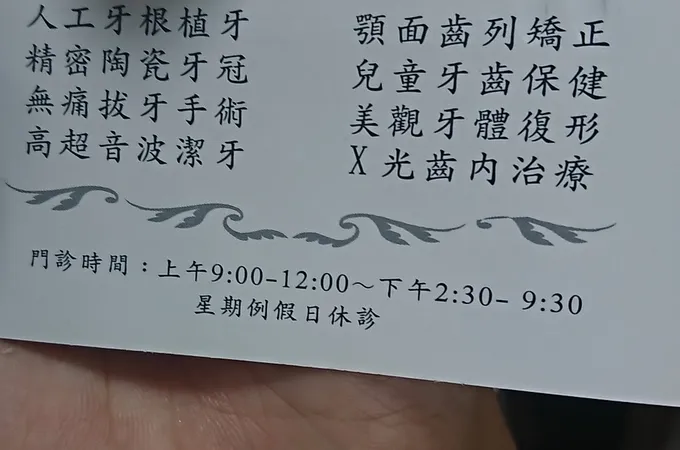 人工牙根植牙
精密陶瓷牙冠
無痛拔牙手術
高超音波潔牙
顎面齒列矯正
兒童牙齒保健
美觀牙體復形
X光齒內治療
門診時間：上午9:00-12:00～下午2:30- 9:30
星期例假日休診